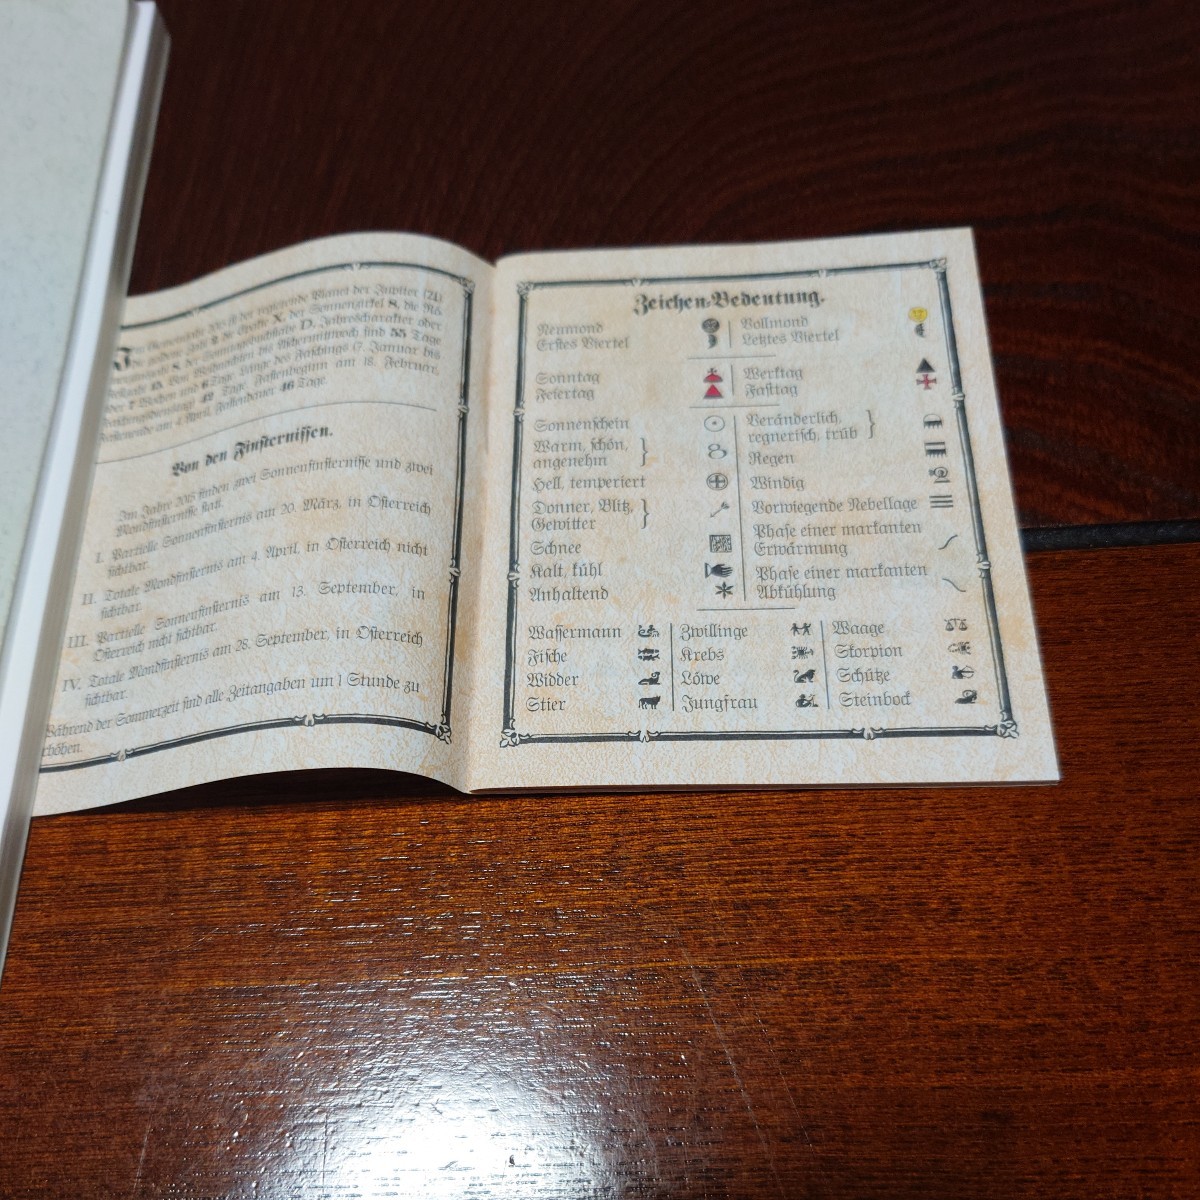 Im Gemeinjahr 2015 ist der regierende Planet der Jupiter (21)
die goldene Zahl 2 die Epakte X, der Sonnenzirkel 8, die Rö-
8, der Sonntagsbuchstabe D, Jahrescharakter oder
Von Weihnachten bis Aschermittwoch sind 55 Tage
oder 7 Wochen und 6 Tage Länge des Faschings (7. Januar bis
Faschingsdienstag) 42 Tage, Fastenbeginn am 18. Februar,
Fastenende am 4. April, Fastendauer 46 Tage.
Von den Finsternissen.
Im Jahre 2015 finden zwei Sonnenfinsternisse und zwei
Mondfinsternisse statt.
I. Partielle Sonnenfinsternis am 20. März, in Österreich
sichtbar.
II. Totale Mondfinsternis am 4. April, in Österreich nicht
sichtbar.
III. Partielle Sonnenfinsternis am 13. September, in
Österreich nicht sichtbar.
IV. Totale Mondfinsternis am 28. September, in Österreich
sichtbar.
Während der Sommerzeit sind alle Zeitangaben um 1 Stunde zu
erhöhen.
Zeichen-Bedeutung.
Neumond
Erstes Viertel
Vollmond
Letztes Viertel
Sonntag
Feiertag
Werktag
Fasttag
Sonnenschein
Warm, schön,
angenehm
Hell, temperiert
Donner, Blitz,
Gewitter
Schnee
Kalt, kühl
Anhaltend
Veränderlich,
regnerisch, trüb
Regen
Windig
Vorwiegende Nebellage
Phase einer markanten
Erwärmung
Phase einer markanten
Abkühlung
Wassermann
Fische
Widder
Stier
Zwillinge
Krebs
Löwe
Jungfrau
Waage
Skorpion
Schütze
Steinbock